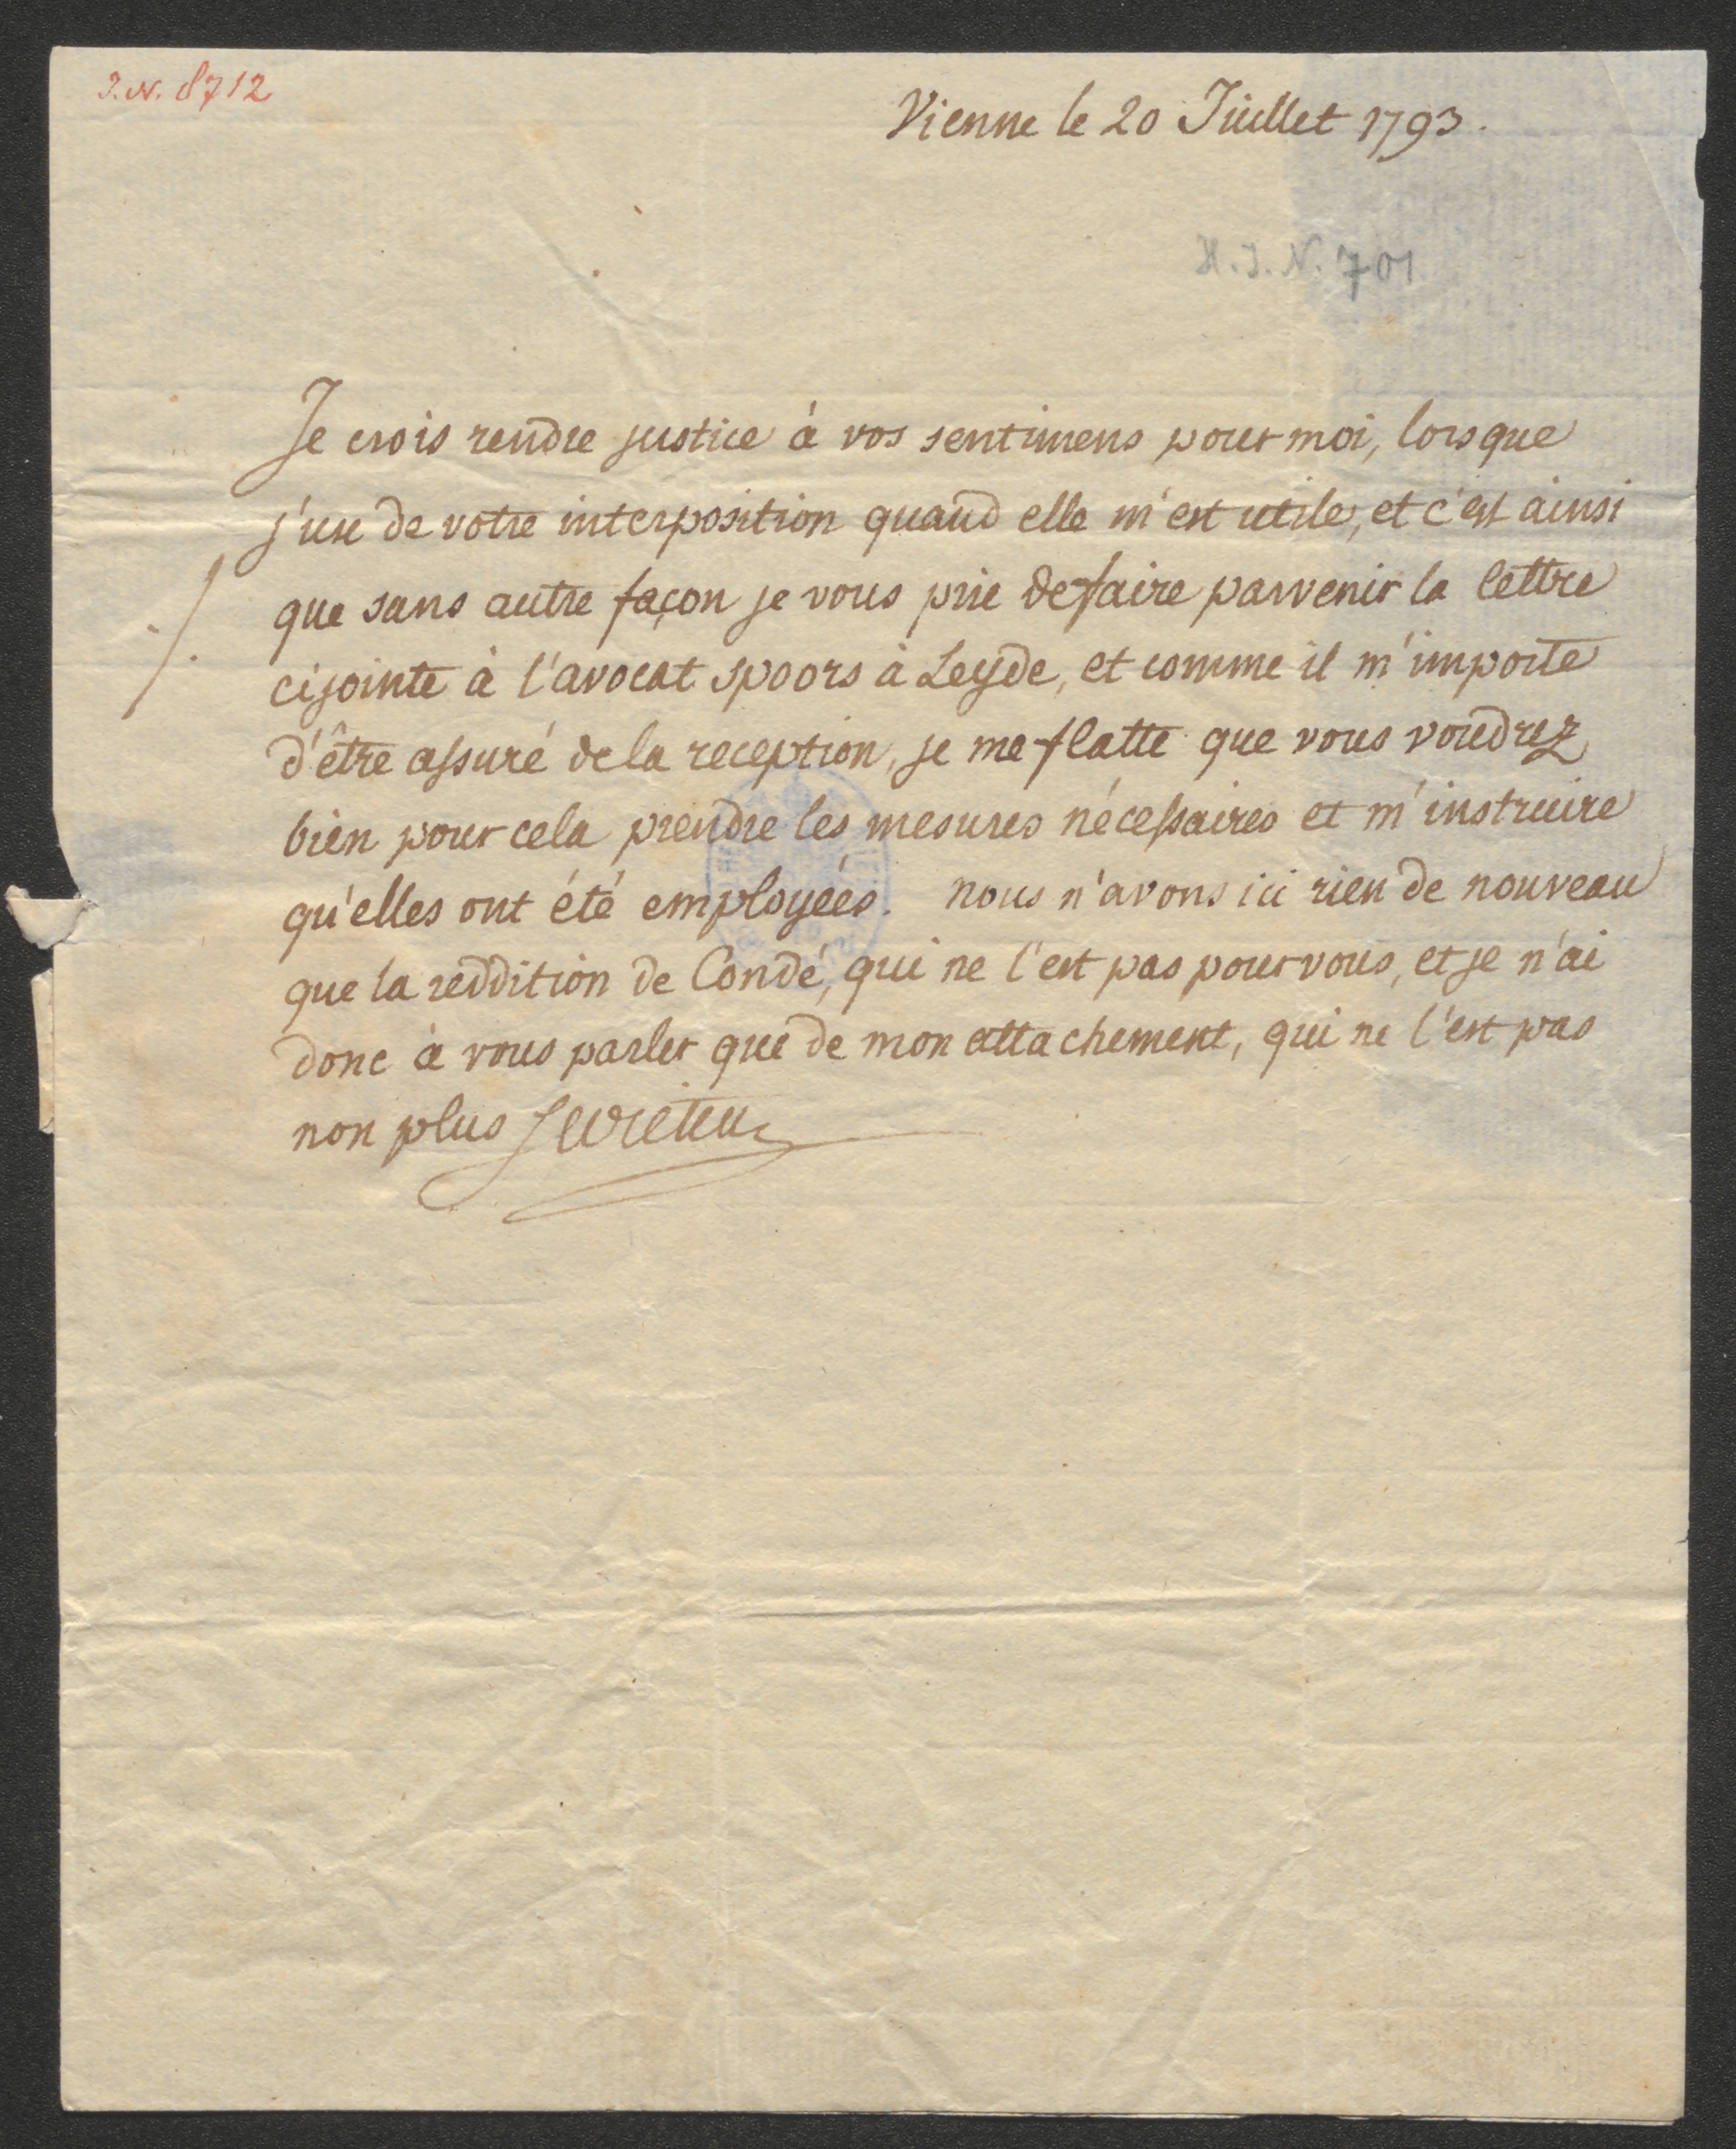 J.N. 8712
Vienne le 20 Juillet 1793.
H.J.N. 701
Je crois rendre justice à vos sentimens pour moi, lorsque
j'use de votre interposition quand elle m'est utile, et c'est ainsi
que sans autre façon je vous prie de faire parvenir la lettre
cijointe à l'avocat spoors à Leyde, et comme il m'importe
d'être assuré de la reception, je me flatte que vous voudrez
bien pour cela prendre les mesures nécessaires et m'instruire
qu'elles ont été employées. nous n'avons ici rien de nouveau
que la reddition de Condé, qui ne l'est pas pour vous, et je n'ai
donc à vous parler que de mon attachement, qui ne l'est pas
non plus